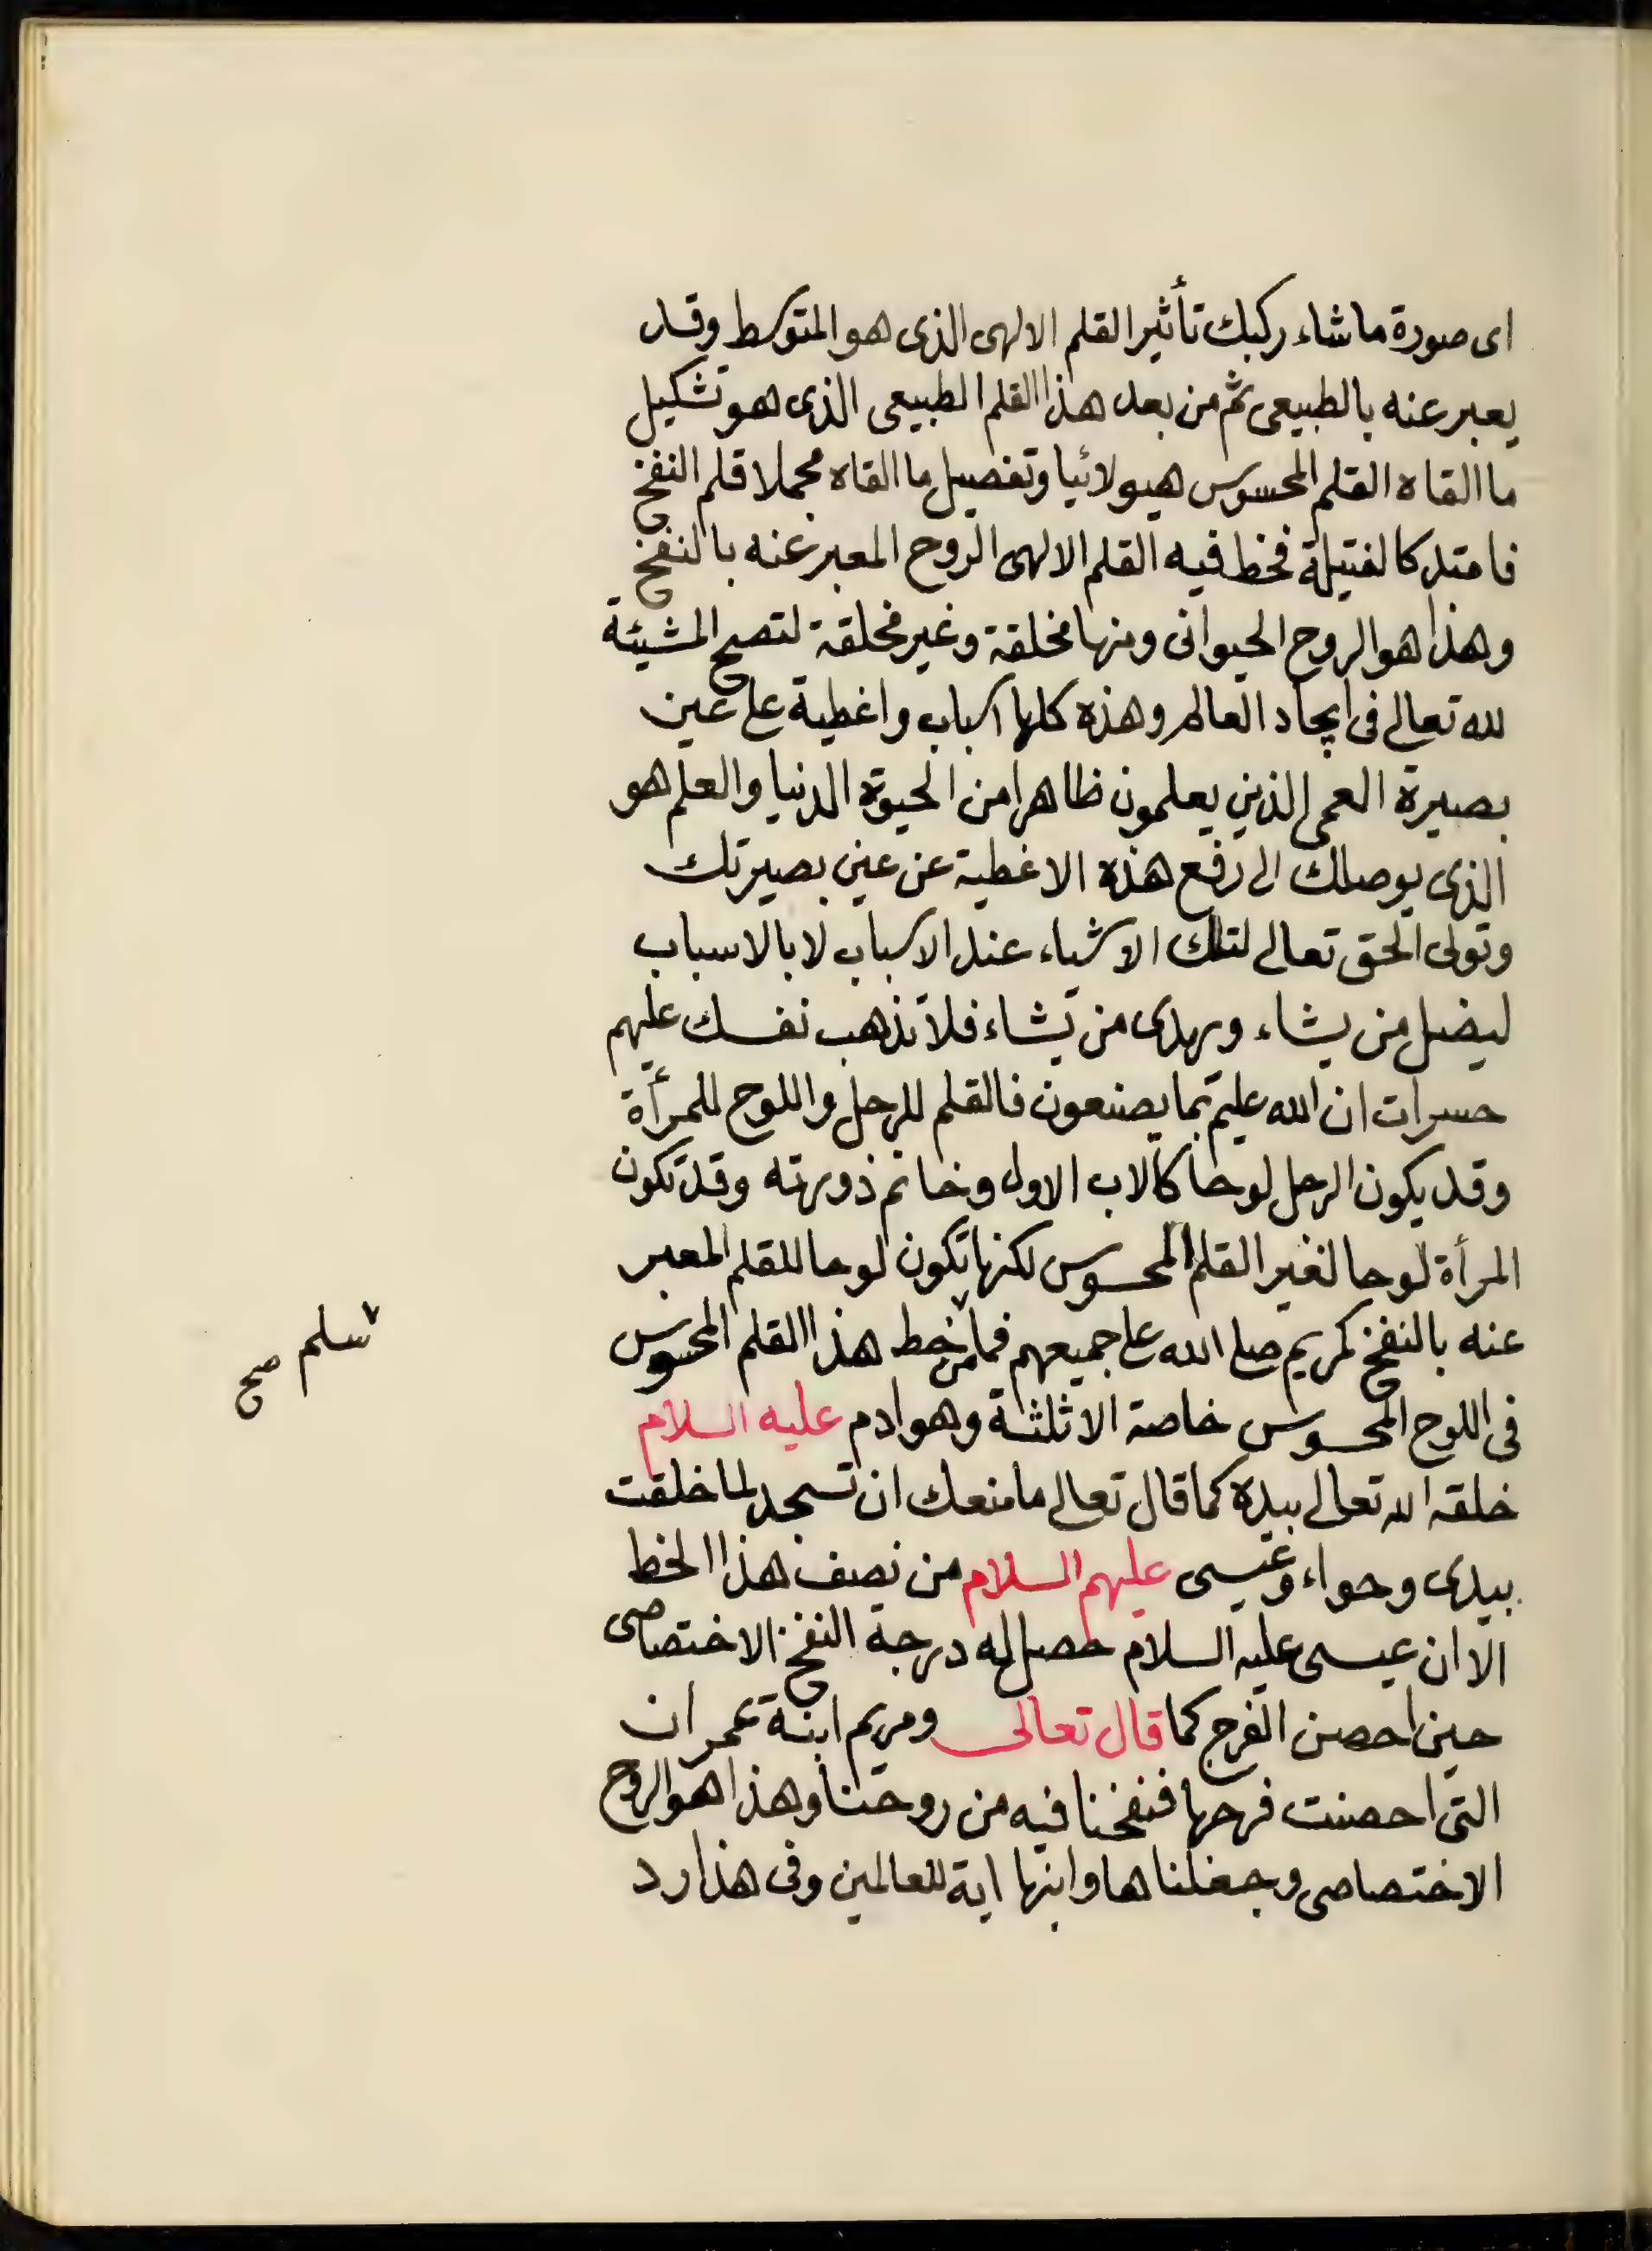 اى صورة ما شاء ركبك تأثير القلم الالهى الذى هو المتوسط وقد
يعبر عنه بالطبيعى ثم من بعد هذا القلم الطبيعى الذى هو تشكيل
ما القاه القلم المحسوس هيولائيا وتفصيل ما القاه مجملا قلم النفخ
فامتد كالفتيلة فخط فيه القلم الالهى الروح المعبر عنه بالنفخ
وهذا هو الروح الحيوانى ومنها مخلقة وغير مخلقة لتصح المشيئة
لله تعالى فى ايجاد العالم وهذه كلها اسباب واغطية على عين
بصيرة العمى الذين يعلمون ظاهرا من الحيوة الدنيا والعلم هو
الذى يوصلك الى رفع هذه الاغطية عن عين بصيرتك
وتولى الحق تعالى لتلك الاشياء عند الاسباب لا بالاسباب
ليضل من يشاء ويهدى من يشاء فلا تذهب نفسك عليهم
حسرات ان الله عليم بما يصنعون فالقلم للرجل واللوح للمرأة
وقد يكون الرجل لوحا كالاب الاول وخاتم ذورته وقد تكون
المرأة لوحا لغير القلم المحسوس لكنها تكون لوحا للقلم المعبر
عنه بالنفخ كمريم صلى الله على جميعهم فما من خط هذا القلم المحسوس
وسلم صح
فى اللوح المحسوس خاصة الا ثلثة وهو ادم عليه السلام
خلقه الله تعالى بيده كما قال تعالى ما منعك ان تسجد لما خلقت
بيدى وحواء وعيسى عليهم السلام من نصف هذا الخط
الا ان عيسى عليه السلام حصل له درجة النفخ الاختصاصى
حين احصن الفرج كما قال تعالى ومريم ابنة عمران
التى احصنت فرجها فنفخنا فيه من روحنا وهذا هو الروح
الاختصاصى وجعلناها وابنها اية للعالمين وفى هذا رد